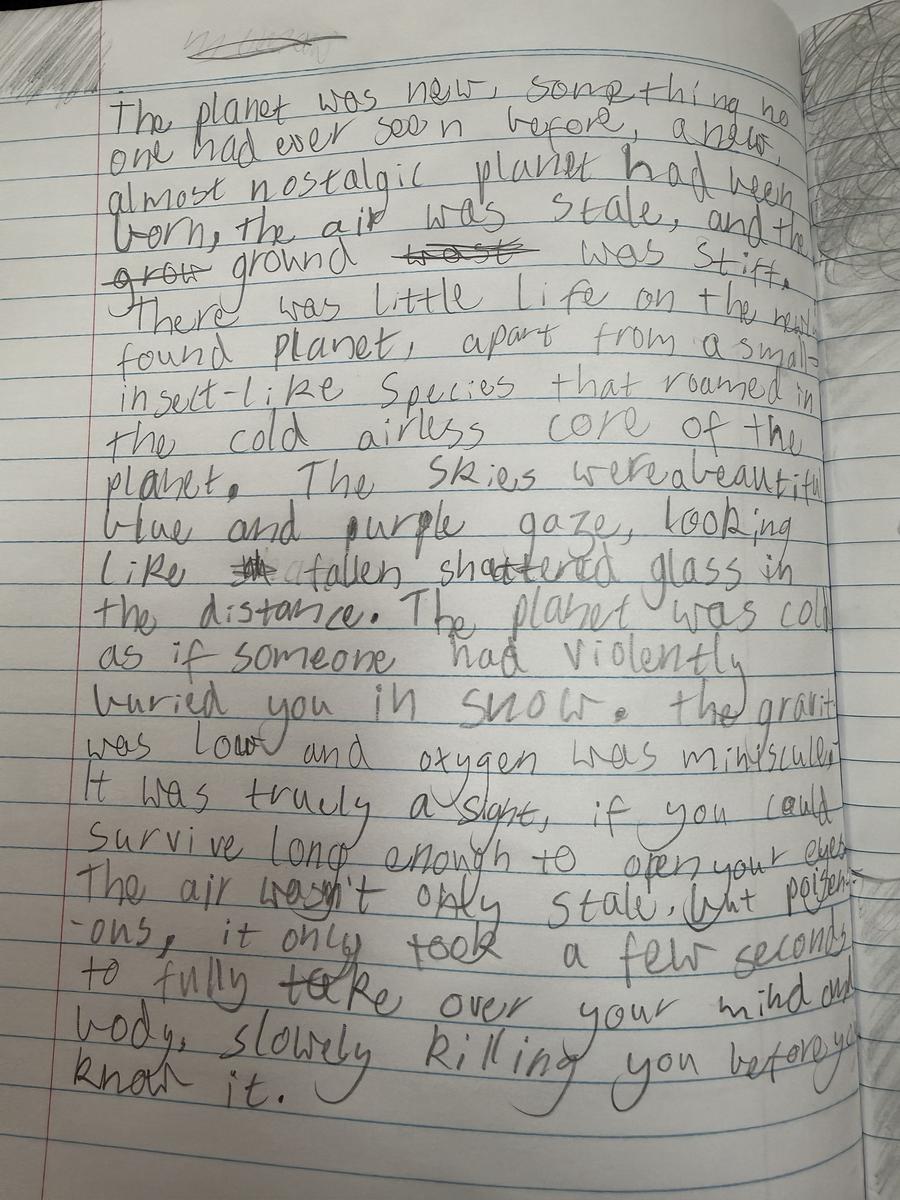 The planet was new, something no
one had ever seen before, a new,
almost nostalgic planet had been
born, the air was stale, and the
grow ground was stiff.
There was little life on the newly
found planet, apart from a small
insect-like species that roamed in
the cold airless core of the
planet. The skies were a beautiful
blue and purple gaze, looking
like a fallen shattered glass in
the distance. The planet was cold
as if someone had violently
buried you in snow. the gravity
was low and oxygen was miniscule,
It was truely a sight, if you could
survive long enough to open your eyes
The air wasn't only stale, but poison-
-ous, it only took a few seconds
to fully take over your mind and
body, slowely killing you before you
know it.